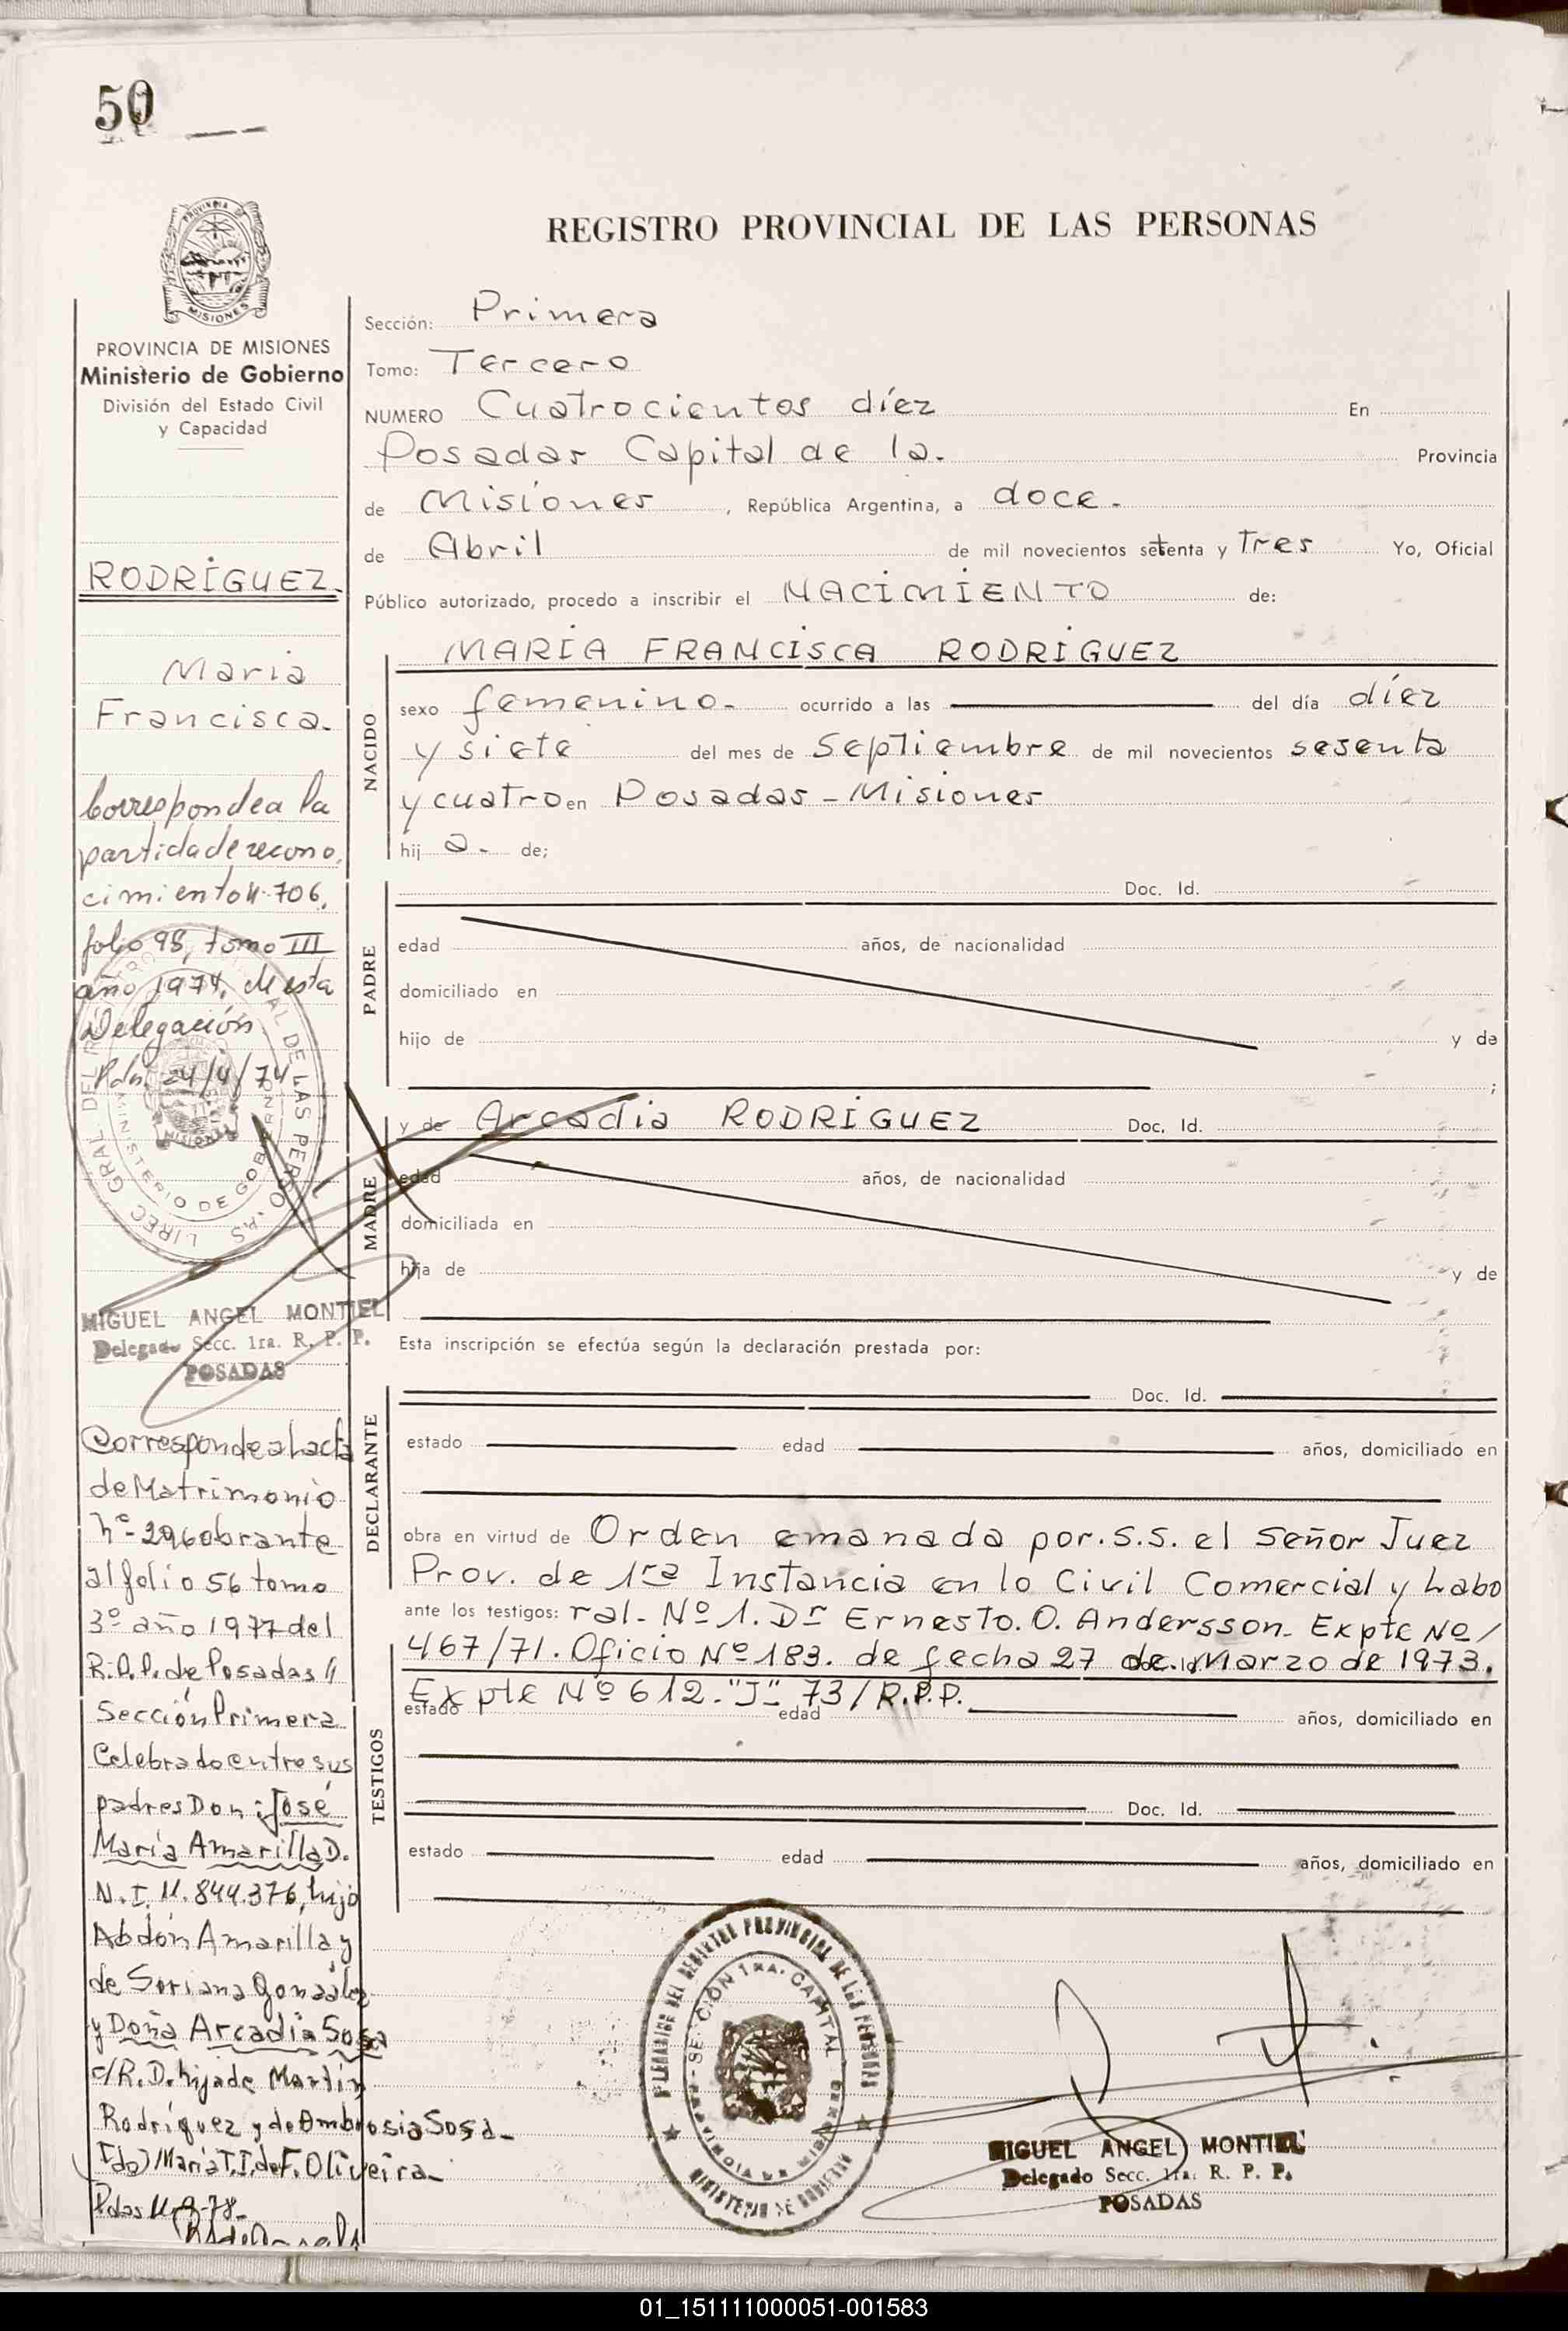 50
REGISTRO PROVINCIAL DE LAS PERSONAS
PROVINCIA DE MISIONES
Ministerio de Gobierno
División del Estado Civil
y Capacidad
RODRÍGUEZ
Maria
Francisca.
Corresponde a la
partida de recono,
cimiento N. 706,
folio 98, tomo III
año 1974, de esta
Delegación
Pdas. 24/4/74
MIGUEL ANGEL MONTIEL
Delegado Secc. 1ra. R. P. P.
POSADAS
Corresponde al acta
de Matrimonio
nº 296 obrante
al folio 56 tomo
3º año 1977 del
R.P.P. de Posadas //
Sección Primera
Celebrado entre sus
padres Don: José
María Amarilla D.
N.I. M. 844.376, hijo
Abdón Amarilla y
de Soriana González
y Doña Arcadia Sosa
c/R.D. hija de Martín
Rodríguez y de Ambrosia Sosa_
Fdo) María T.I. de F. Oliveira_
Pdas
Sección: Primera
Tomo: Tercero
NUMERO Cuatrocientos díez En
Posadas Capital de la. Provincia
de Misiones , República Argentina, a doce.
de Abril de mil novecientos setenta y Tres Yo, Oficial
Público autorizado, procedo a inscribir el NACIMIENTO de:
NACIDO
MARÍA FRANCISCA RODRÍGUEZ
sexo femenino. ocurrido a las del día díez
y siete del mes de Septiembre de mil novecientos sesenta
y cuatro en Posadas - Misiones
hij a. de;
PADRE
Doc. Id.
edad años, de nacionalidad
domiciliado en
hijo de y de
;
MADRE
y de Arcadia RODRÍGUEZ Doc. Id.
edad años, de nacionalidad
domiciliada en
hija de y de
Esta inscripción se efectúa según la declaración prestada por:
DECLARANTE
Doc. Id.
estado edad años, domiciliado en
obra en virtud de Orden emanada por. S.S. el Señor Juez
Prov. de 1ra Instancia en lo Civil Comercial y Labo
ante los testigos: ral. Nº 1. Dr Ernesto. O. Andersson. Expte Nº/
467/71. Oficio Nº 183. de fecha 27 de. Marzo de 1973.
Expte Nº 612. "J" 73/R.P.P.
TESTIGOS
estado edad años, domiciliado en
Doc. Id.
estado edad años, domiciliado en
SECCION 1RA. CAPITAL
MIGUEL ANGEL MONTIEL
Delegado Secc. 1ra. R. P. P.
POSADAS
01_151111000051-001583